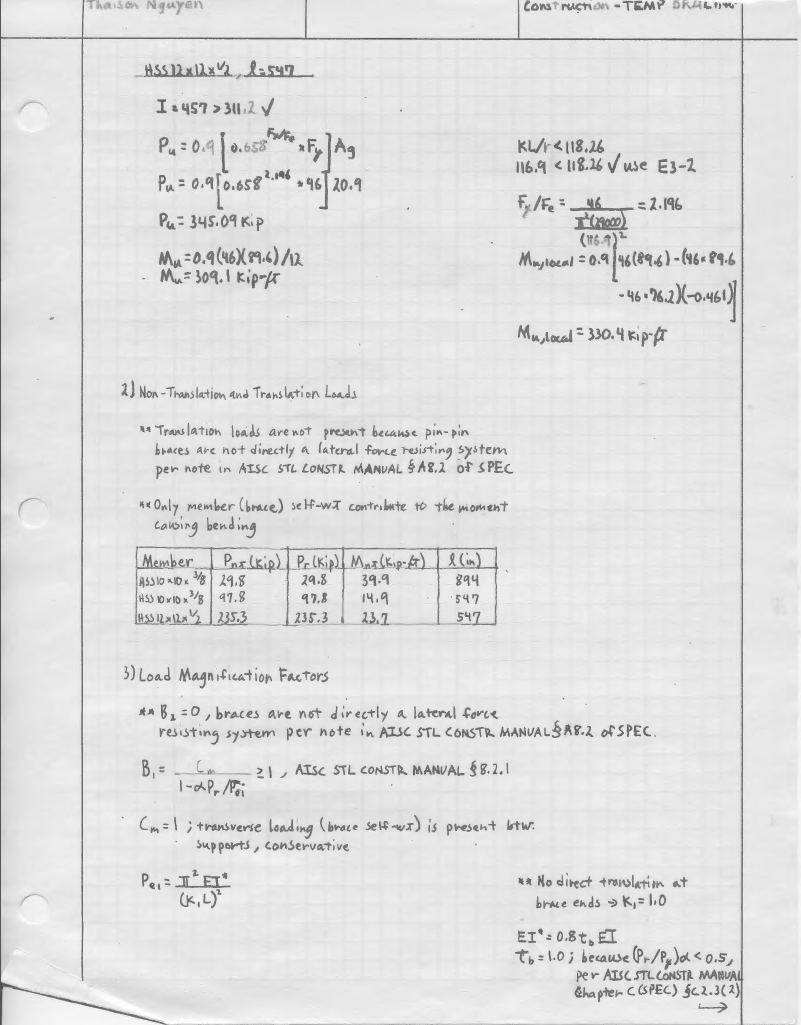 Thaison Nguyen
Construction - TEMP BRACING
HSS 12x12x1/2, l=547
I = 457 > 311.2 √
Pu = 0.9 [0.658^(Fy/Fe) * Fy] Ag
Pu = 0.9 [0.658^2.196 * 46] 20.9
Pu = 345.09 Kip
Mu = 0.9(46)(89.6)/12
Mu = 309.1 Kip-ft
KL/r < 118.26
116.9 < 118.26 √ use E3-2
Fy/Fe = 46 / (π²(29000) / (116.9)²) = 2.196
Mu,local = 0.9 [46(89.6) - (46*89.6
- 46*76.2)(-0.461)]
Mu,local = 330.4 Kip-ft
2) Non-Translation and Translation Loads
** Translation loads are not present because pin-pin
braces are not directly a lateral force resisting system
per note in AISC STL CONSTR MANUAL § A8.2 of SPEC
** Only member (brace) self-wt contribute to the moment
causing bending
Member Pnt (Kip) Pr (Kip) Mnt (Kip-ft) l (in)
HSS 10x10x 3/8 29.8 29.8 39.9 894
HSS 10x10x 3/8 97.8 97.8 14.9 547
HSS 12x12x 1/2 235.3 235.3 23.7 547
3) Load Magnification Factors
** B2 = 0, braces are not directly a lateral force
resisting system per note in AISC STL CONSTR MANUAL § A8.2 of SPEC.
B1 = Cm / (1-αPr/Pe1) ≥ 1, AISC STL CONSTR MANUAL § 8.2.1
Cm = 1 ; transverse loading (brace self-wt) is present btw.
supports, conservative
Pe1 = π² EI* / (K1L)²
** No direct translation at
brace ends → K1 = 1.0
EI* = 0.8 τb EI
τb = 1.0 ; because (Pr/Py)α < 0.5,
per AISC STL CONSTR MANUAL
Chapter C (SPEC) § C2.3(2)
→